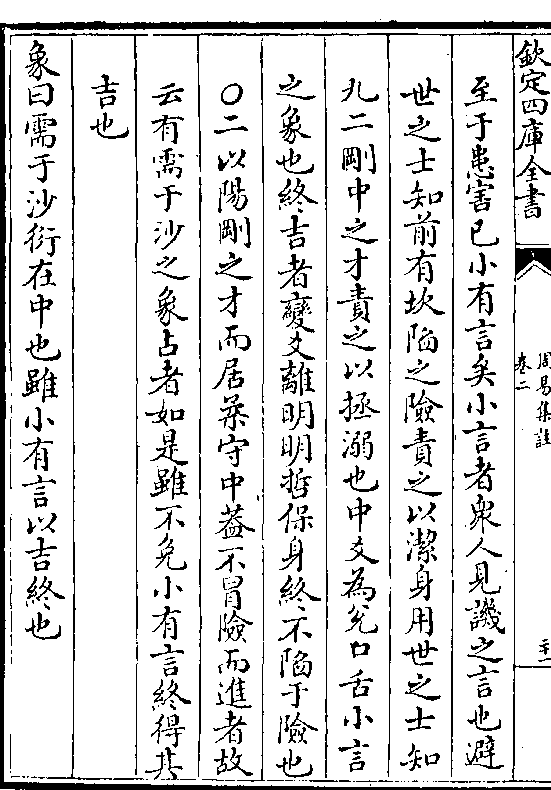 欽定四庫全書
周易集註
卷二
二十一
至于患害已小有言矣小言者衆人見譏之言也避
世之士知前有坎陷之險責之以潔身用世之士知
九二剛中之才責之以拯溺也中爻為兌口舌小言
之象也終吉者變爻離明明哲保身終不陷于險也
○二以陽剛之才而居柔守中葢不冒險而進者故
云有需于沙之象占者如是雖不免小有言終得其
吉也
象曰需于沙衍在中也雖小有言以吉終也